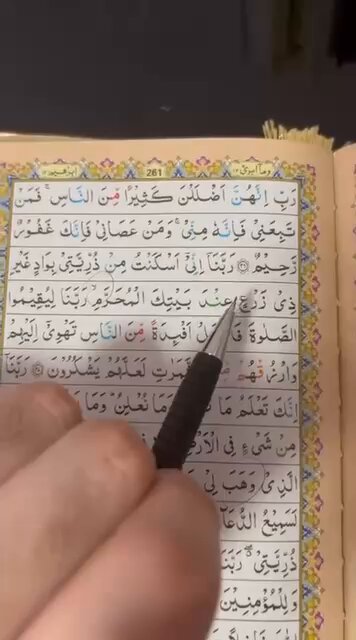 ابرٰهيم ١٤ 261 وما ابرئ ١٣
رَبِّ اِنَّهُنَّ اَضْلَلْنَ كَثِيْرًا مِّنَ النَّاسِ ۚ فَمَنْ
تَبِعَنِيْ فَاِنَّهٗ مِنِّيْ ۚ وَمَنْ عَصَانِيْ فَاِنَّكَ غَفُوْرٌ
رَّحِيْمٌ ﴿٣٦﴾ رَبَّنَاۤ اِنِّيْۤ اَسْكَنْتُ مِنْ ذُرِّيَّتِيْ بِوَادٍ غَيْرِ
ذِيْ زَرْعٍ عِنْدَ بَيْتِكَ الْمُحَرَّمِ ۙ رَبَّنَا لِيُقِيْمُوا
الصَّلٰوةَ اَفْـِٕدَةً مِّنَ النَّاسِ تَهْوِيْۤ اِلَيْهِمْ
وَارْزُقْهُمْ الثَّمَرٰتِ لَعَلَّهُمْ يَشْكُرُوْنَ ﴿٣٧﴾ رَبَّنَاۤ
اِنَّكَ تَعْلَمُ مَا نُعْلِنُ ؕ وَمَا
مِنْ شَيْءٍ فِي الْاَرْضِ
الَّذِيْ وَهَبَ لِيْ
لَسَمِيْعُ الدُّعَآءِ
ذُرِّيَّتِيْ ۖ رَبَّنَا
وَلِلْمُؤْمِنِيْنَ